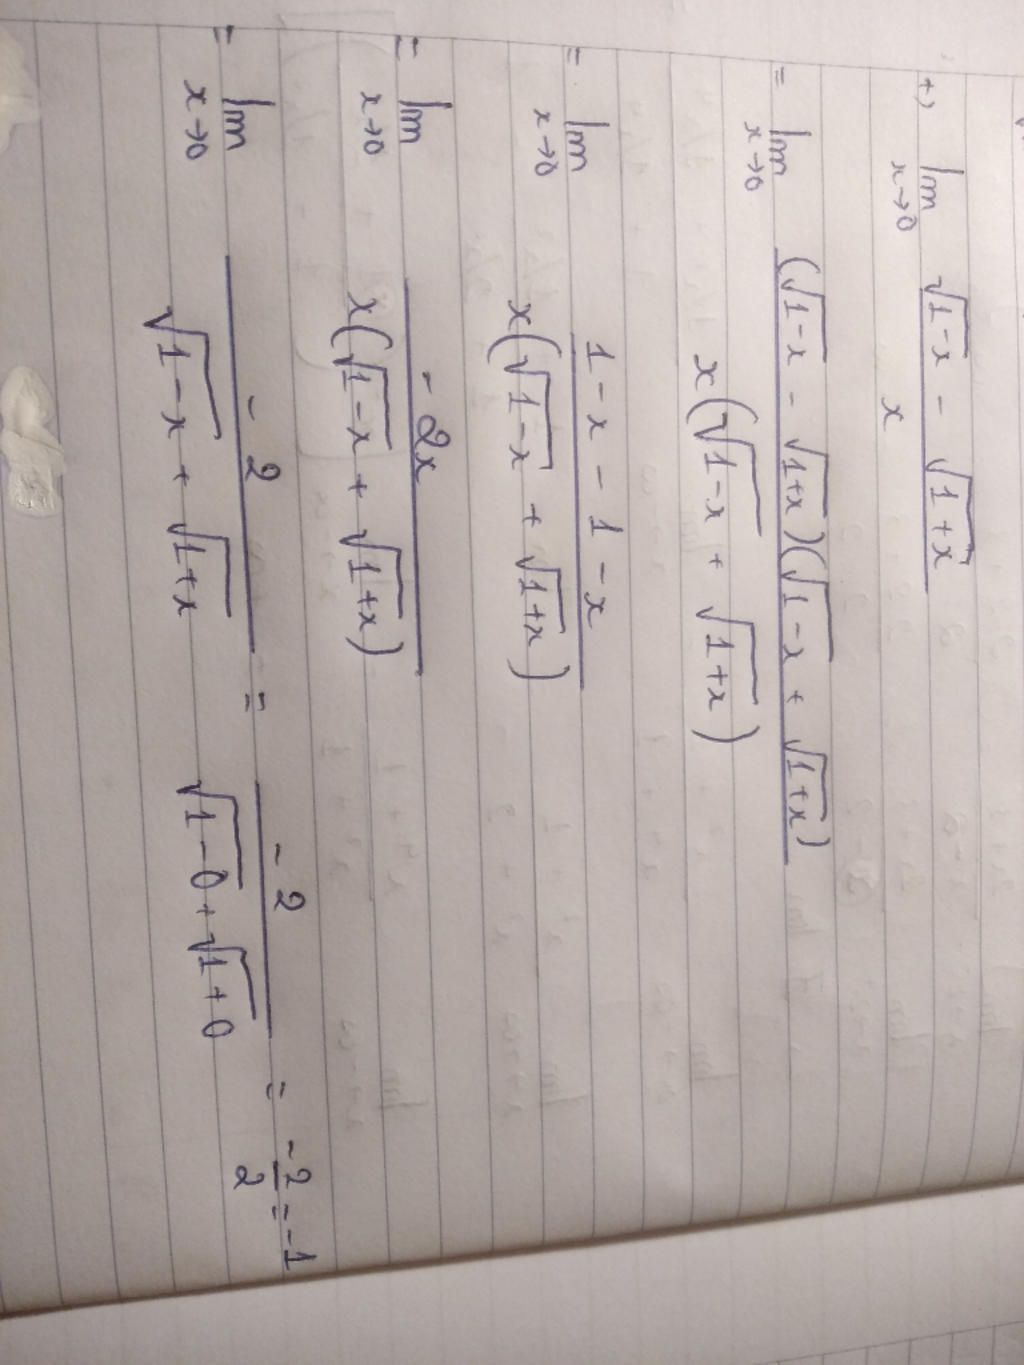 +) lim x→0 (√(1-x) - √(1+x)) / x
= lim x→0 ((√(1-x) - √(1+x))(√(1-x) + √(1+x))) / (x(√(1-x) + √(1+x)))
= lim x→0 (1 - x - 1 - x) / (x(√(1-x) + √(1+x)))
= lim x→0 (-2x) / (x(√(1-x) + √(1+x)))
= lim x→0 (-2) / (√(1-x) + √(1+x)) = (-2) / (√(1-0) + √(1+0)) = -2/2 = -1